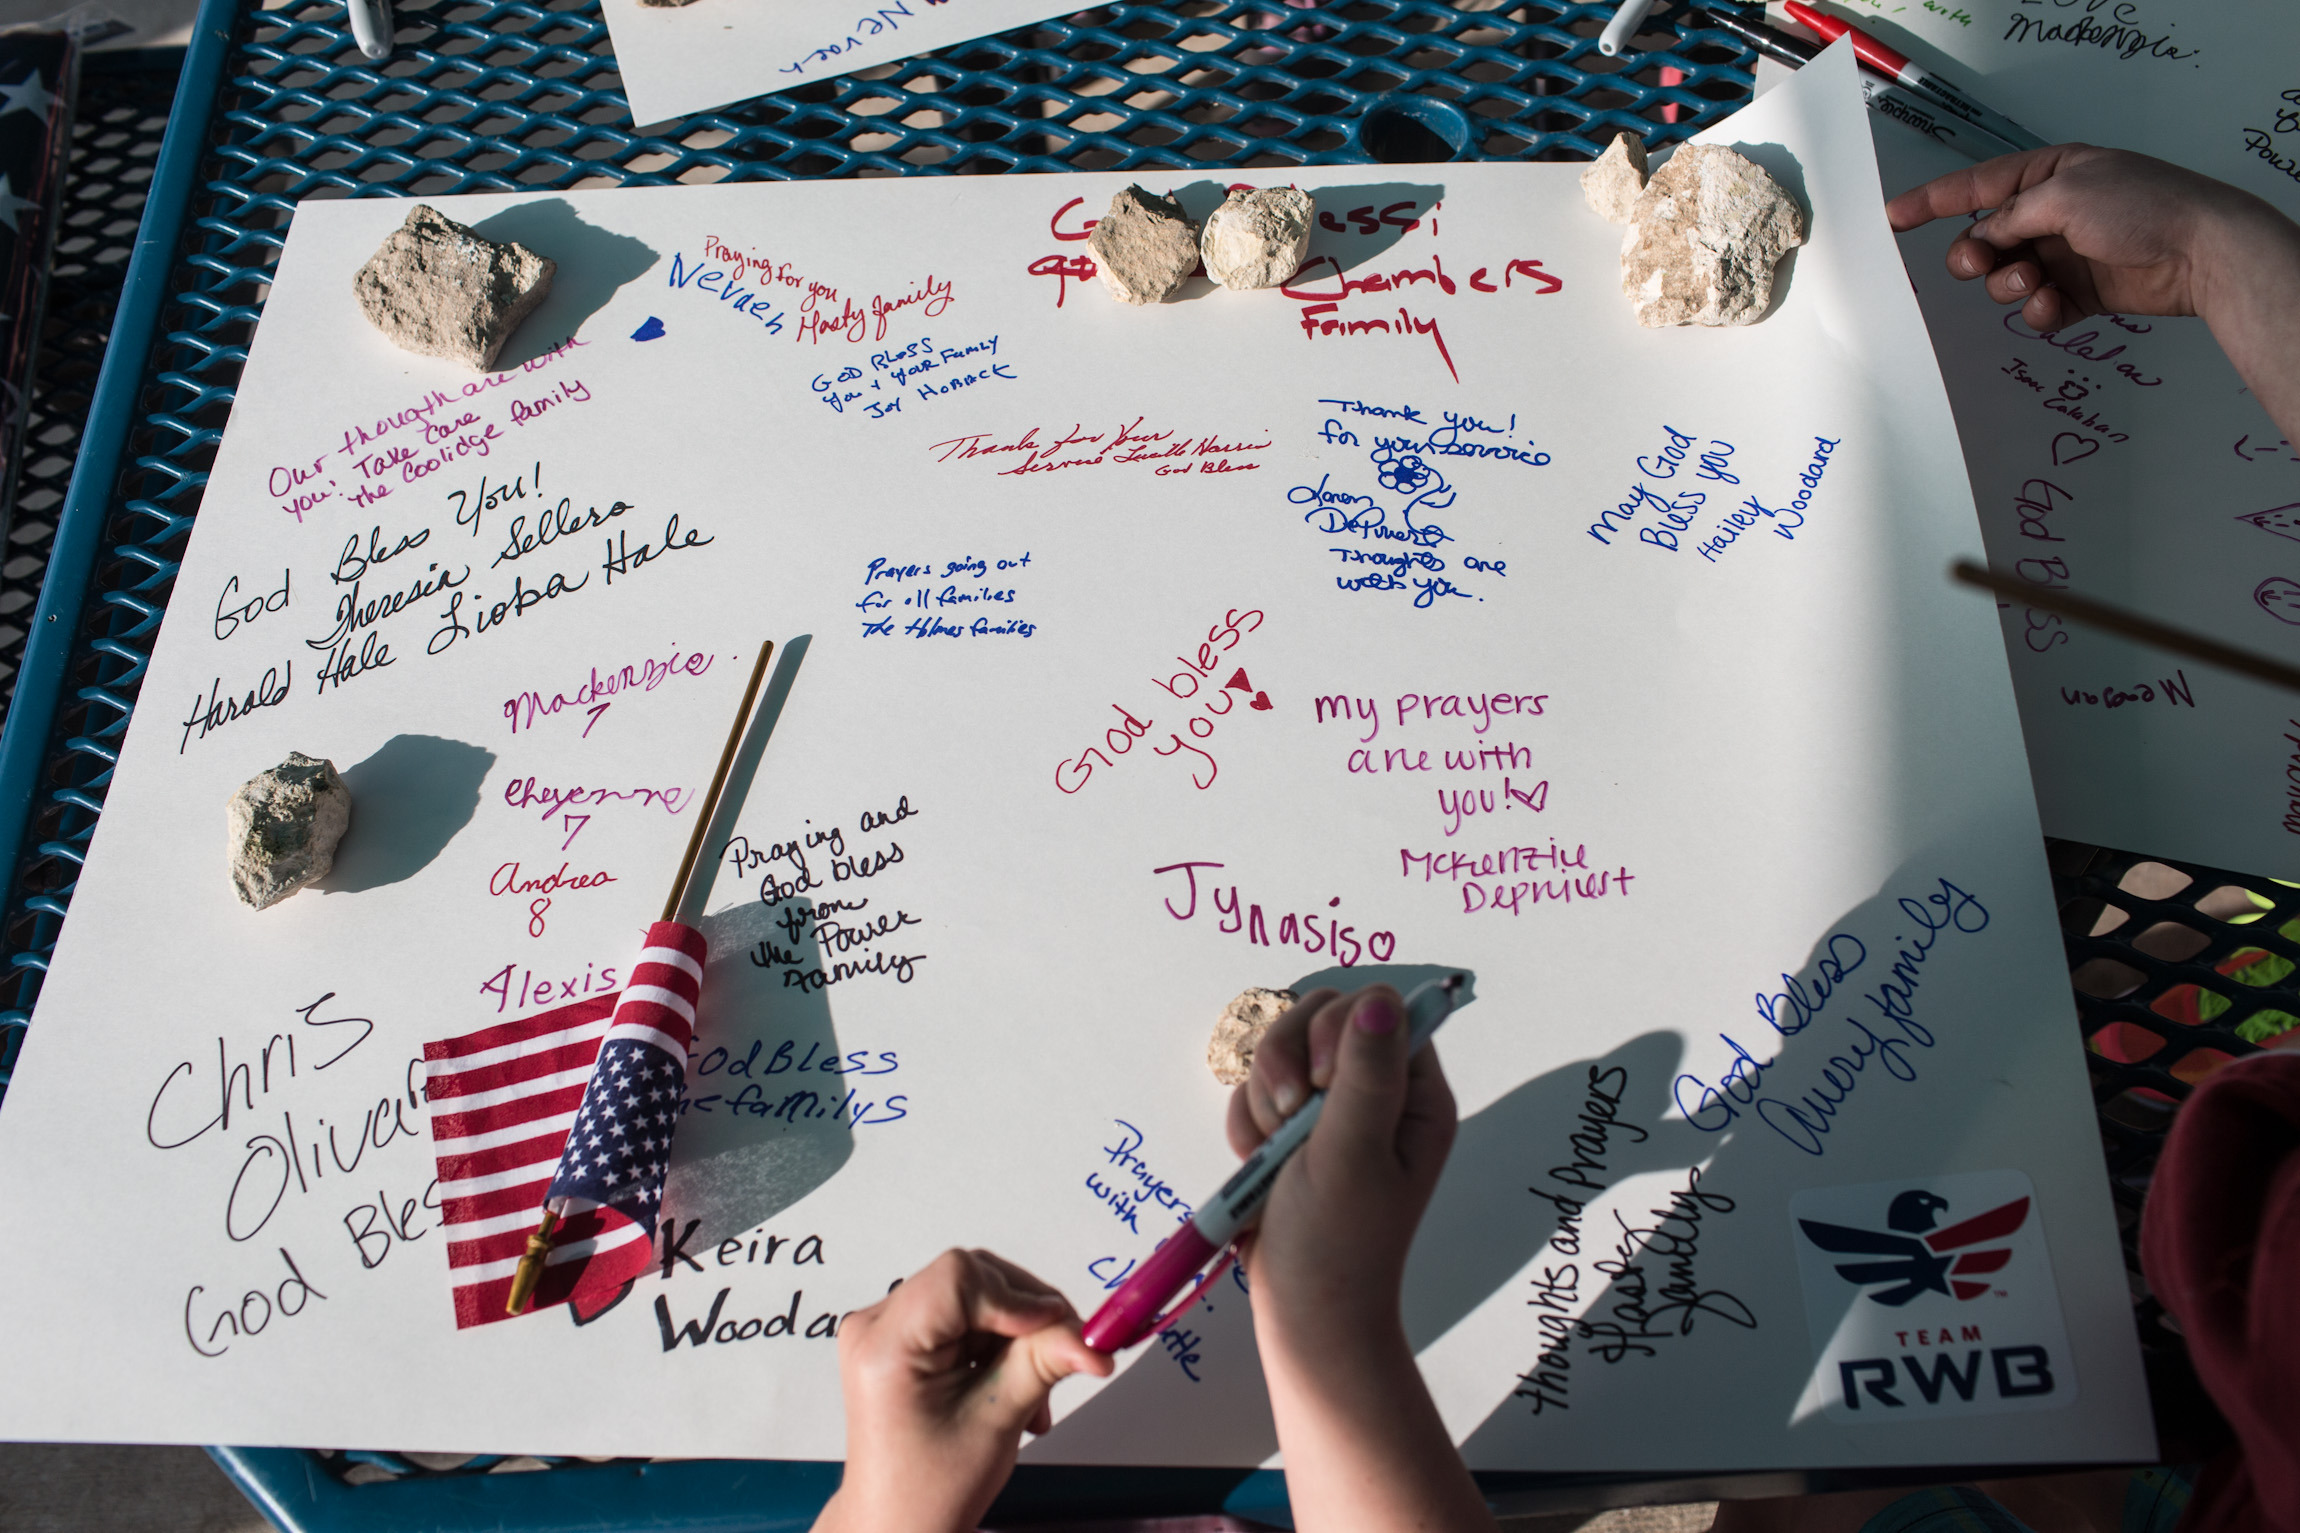 Nevaeh
Love
Mackenzie.
Sharpie
Praying for you
Hasty family
Nevaeh
Chambers
Family
GOD BLESS
you + your Family
Joy Hoback
Our thougth are with
you! Take care
the Coolidge family
God Bless You!
Theresia Sellers
Harold Hale Lioba Hale
Thanks for Your
Service Lucille Harris
God Bless
Thank you!
for your service
Loren
DePriest
Thoughts are
with you.
May God
Bless you
Hailey
Woodard
Prayers going out
for all families
The Holmes families
Mackenzie.
7
Cheyenne
7
Andrea
8
Alexis
God bless
you
my prayers
are with
you!
McKenzie
Depriest
Jynasis
Praying and
God bless
from
the Power
Family
Chris
Olivar
God Bless
God BLess
familys
Keira
Prayers
with
Thoughts and Prayers
Family
God Bless
Avery family
TEAM
RWB
Caleb
Isaac Calahan
God Bless